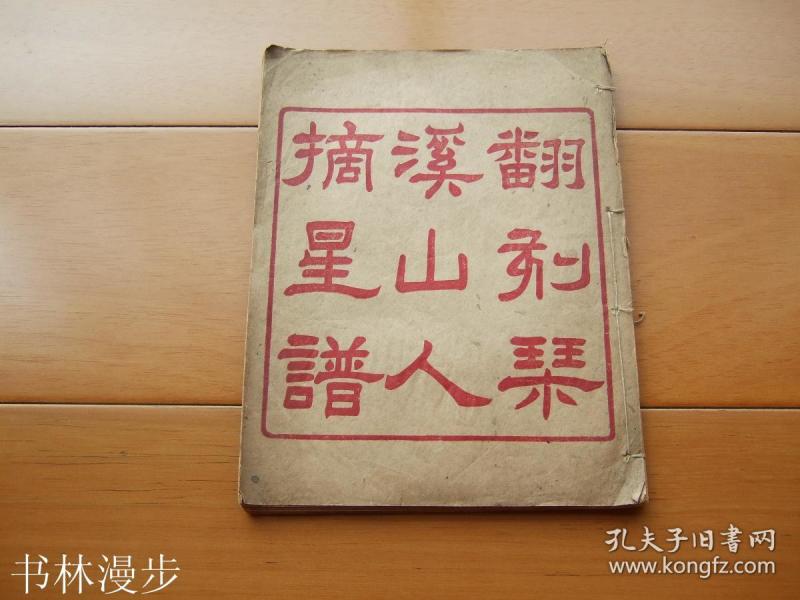 翻刻琹
溪山人
摘星譜
书林漫步
孔夫子旧书网
www.kongfz.com